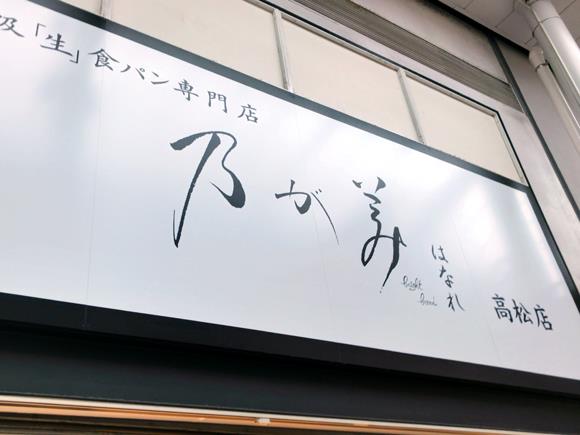 級「生」食パン専門店
乃が美
はなれ
高松店